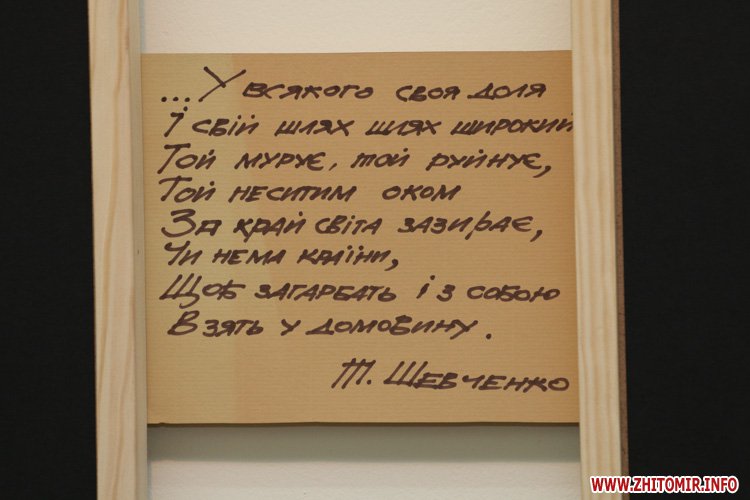 ...У всякого своя доля
І свій шлях шлях широкий
Той мурує, той руйнує,
Той неситим оком
За край світа зазирає,
Чи нема країни,
Щоб загарбать і з собою
Взять у домовину.
Т. Шевченко
WWW.ZHITOMIR.INFO